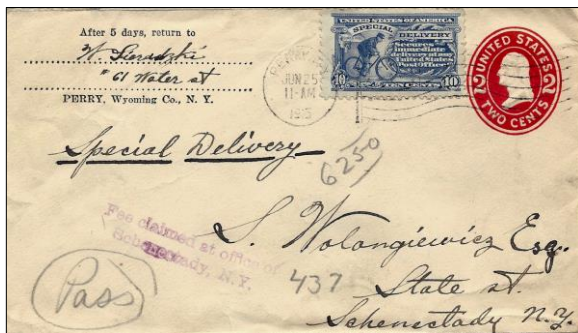 After 5 days, return to
W. Sieradzki
# 61 Water st
PERRY, Wyoming Co., N. Y.
JUN 25
11-AM
UNITED STATES OF AMERICA
SPECIAL DELIVERY
Secures immediate delivery at any United States Post Office
10 TEN CENTS 10
UNITED STATES
2 2
TWO CENTS
Special Delivery
6250
Fee claimed at office of
Schenectady, N.Y.
S. Wolangiewicz Esq.
437 State st.
Schenectady N.Y.
Pass